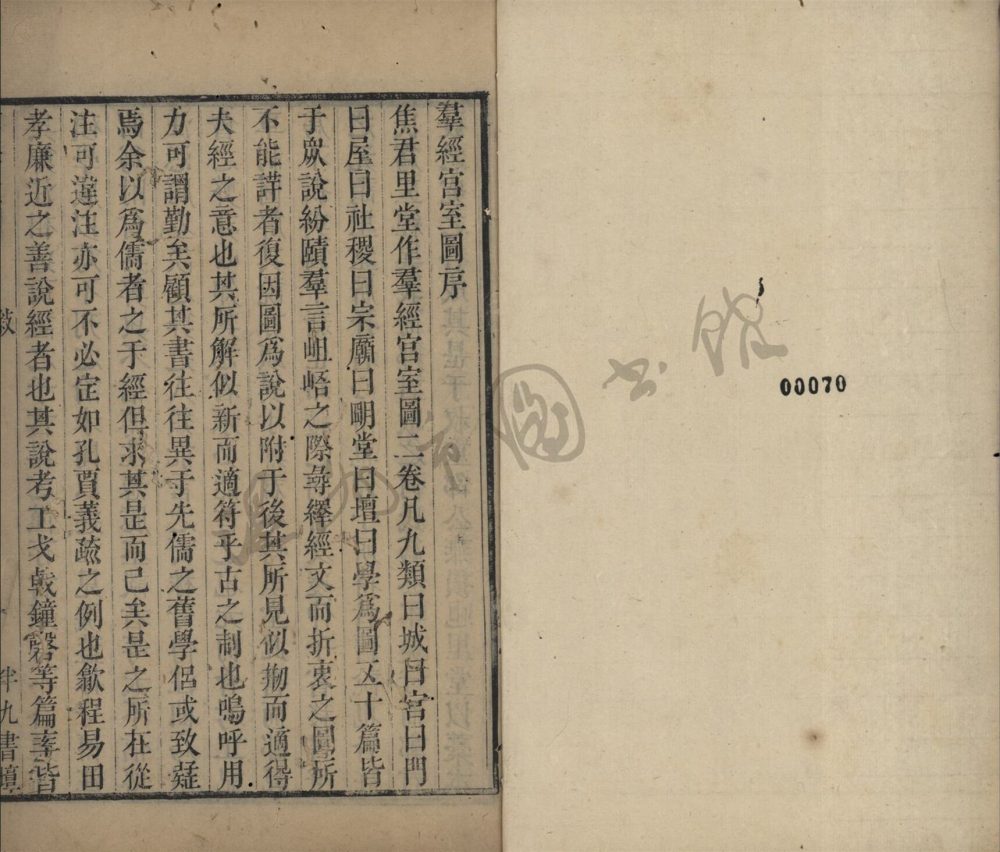 羣經宫室圖序
焦君里堂作羣經宫室圖二卷凡九類曰城曰宫曰門
曰屋曰社稷曰宗廟曰明堂曰壇曰學爲圖五十篇皆
于衆說紛賾羣言岨峿之際尋繹經文而折衷之圖所
不能詳者復因圖爲說以附于後其所見似剙而適得
夫經之意也其所解似新而適符乎古之制也嗚呼用
力可謂勤矣顧其書往往異于先儒之舊學侶或致疑
焉余以爲儒者之于經但求其是而已矣是之所在從
注可違注亦可不必定如孔賈義疏之例也歙程易田
孝廉近之善說經者也其說考工戈戟鐘磬等篇率皆
敘
半九書塾
圖書館
00070